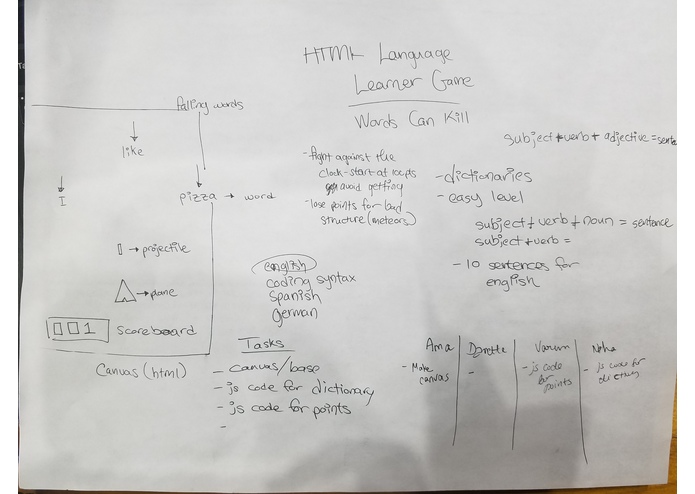 HTML Language
Learner Game
Words Can Kill
falling words
like
I
pizza → word
→ projectile
→ plane
001 scoreboard
Canvas (html)
- fight against the
clock - start at 100pts
avoid getting
- lose points for bad
structure (meteors)
english
coding syntax
Spanish
german
subject + verb + adjective = sente
- dictionaries
- easy level
subject + verb + noun = sentence
subject + verb =
- 10 sentences for
english
Tasks
- canvas/base
- js code for dictionary
- js code for points
-
Ama
- Make
canvas
-
Varun
- js code
for
points
Neha
- js code for
dictionary